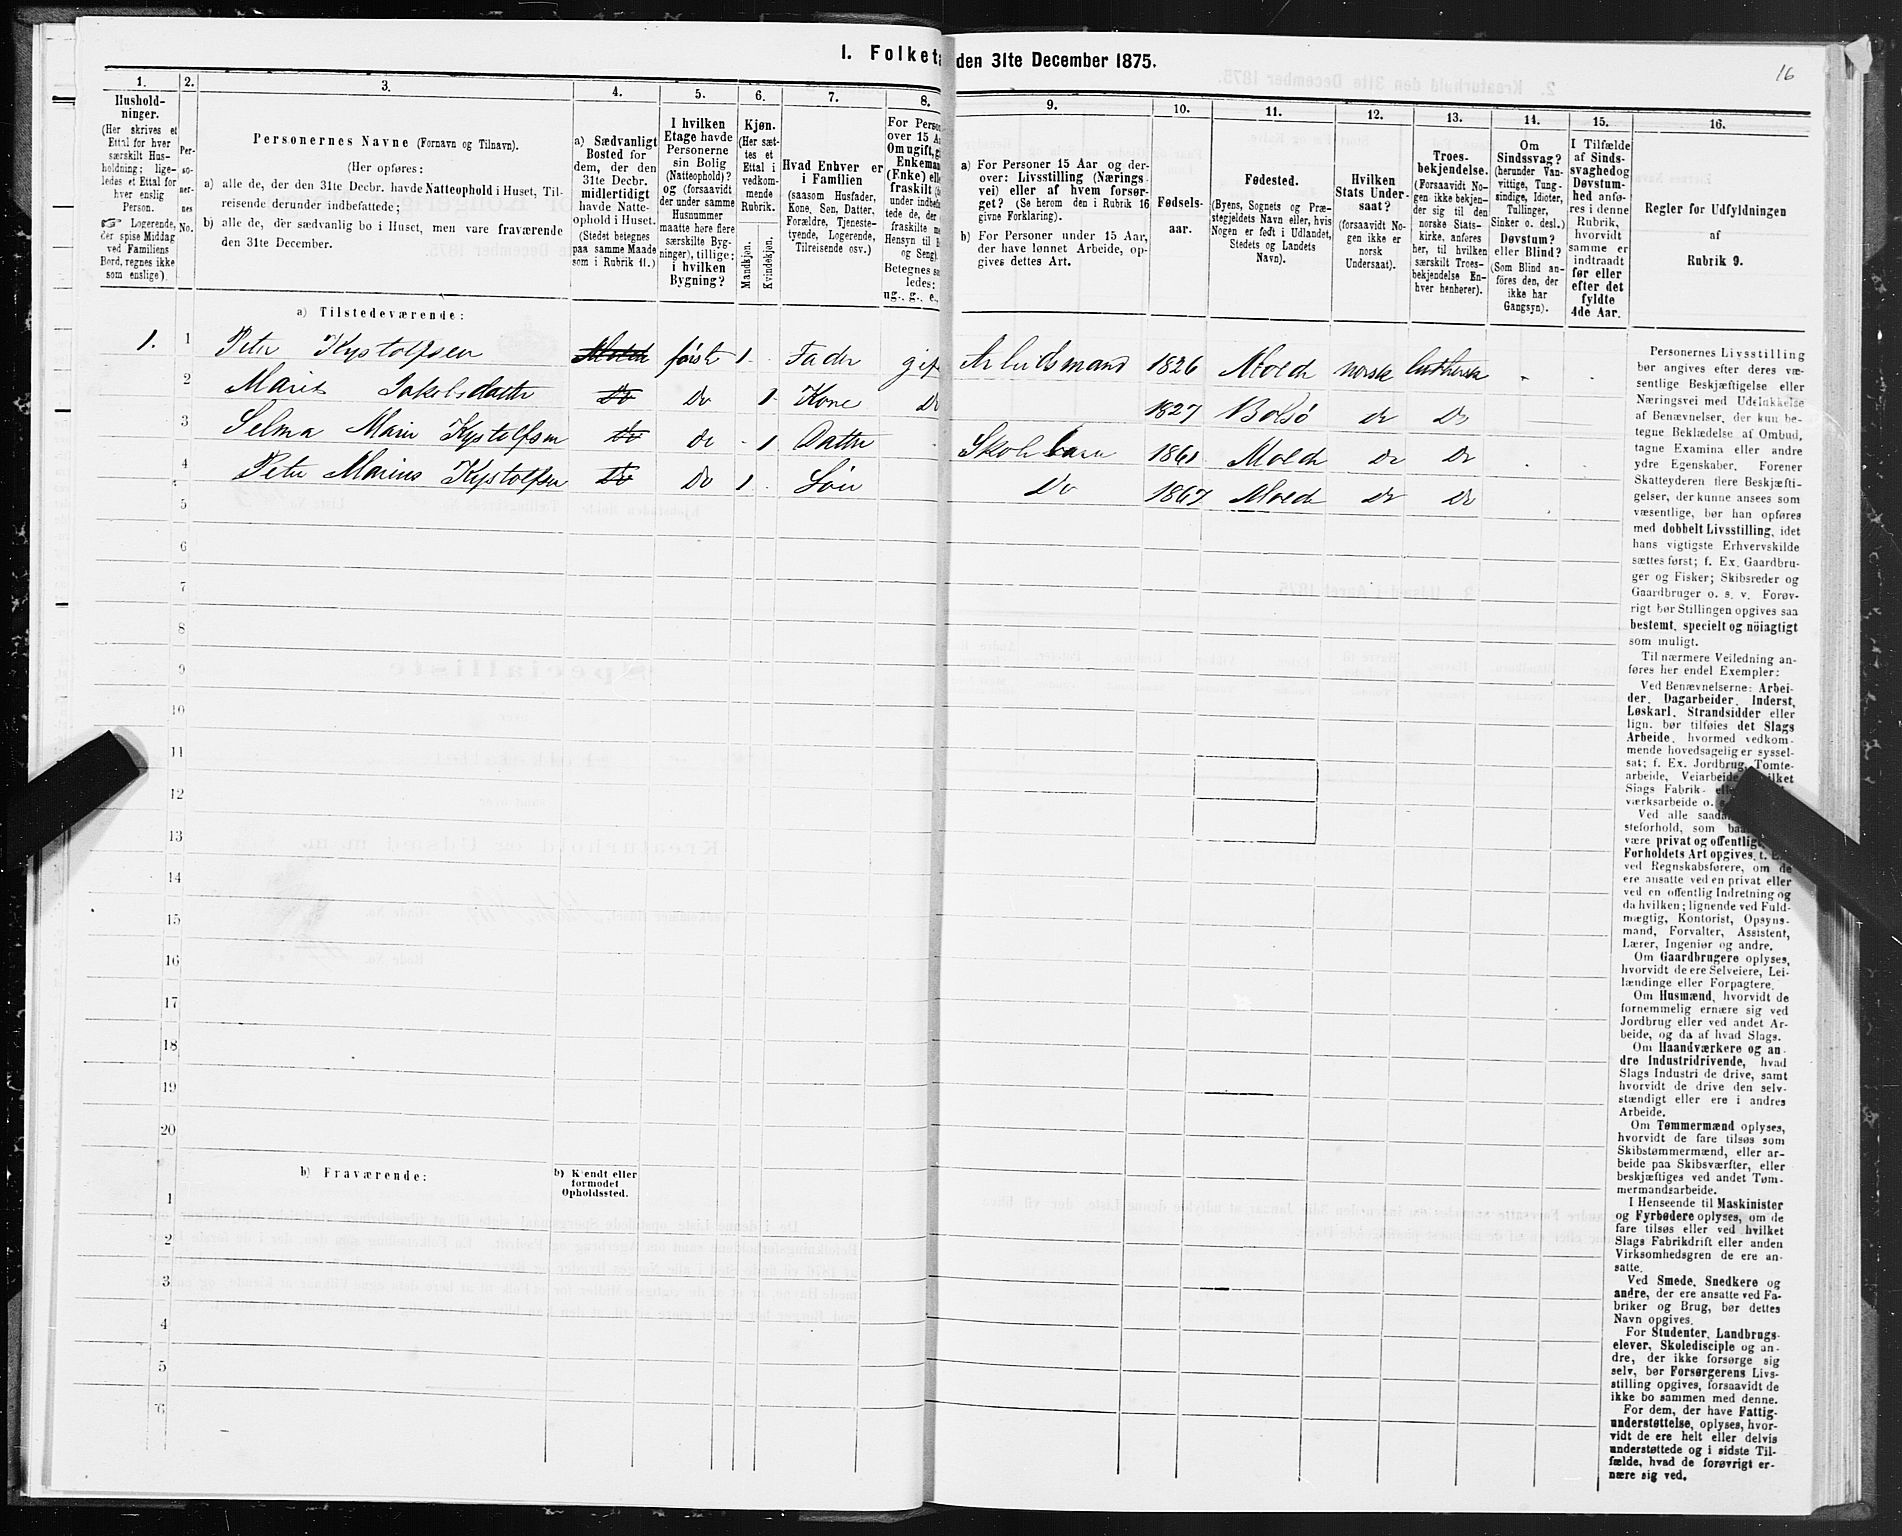 I. Folketæ den 31te December 1875.
16
1.
2.
3.
4.
5.
6.
7.
8.
9.
10.
11.
12.
13.
14.
15.
16.
Hushold-
ninger.
(Her skrives et
Ettal for hver
særskilt Hus-
holdning; lige-
ledes et Ettal for
hver enslig
Person.
☞ Logerende,
der spise Middag
ved Familiens
Bord, regnes ikke
som enslige).
Per-
so-
ner-
nes
No.
Personernes Navne (Fornavn og Tilnavn).
(Her opføres:
a) alle de, der den 31te Decbr. havde Natteophold i Huset, Til-
reisende derunder indbefattede;
b) alle de, der sædvanlig bo i Huset, men vare fraværende
den 31te December.
a) Sædvanligt
Bosted for
dem, der den
31te Decbr.
midlertidigt
havde Natte-
ophold i Huset.
(Stedet betegnes
paa samme Maade
som i Rubrik 11.)
I hvilken
Etage havde
Personerne
sin Bolig
(Natteophold)?
og (forsaavidt
der under samme
Husnummer
maatte høre flere
særskilte Byg-
ninger), tillige:
i hvilken
Bygning?
Kjøn.
(Her sæt-
tes et
Ettal i
vedkom-
mende
Rubrik.
Mandkjøn.
Kvindekjøn.
Hvad Enhver er
i Familien
(saasom Husfader,
Kone, Søn, Datter,
Forældre, Tjeneste-
tyende, Logerende,
Tilreisende osv.)
For Person
over 15 A
Om ugift, gi
Enkeman
(Enke) elle
fraskilt (
under indbefa
tede de, der
fraskilte m
Hensyn til B
og Seng).
Betegnes s
ledes:
ug., g., e.,
a) For Personer 15 Aar og der-
over: Livsstilling (Nærings-
vei) eller af hvem forsør-
get? (Se herom den i Rubrik 16
givne Forklaring).
b) For Personer under 15 Aar,
der have lønnet Arbeide, op-
gives dettes Art.
Fødsels-
aar.
Fødested.
(Byens, Sognets og Præ-
stegjeldets Navn eller, hvis
Nogen er født i Udlandet,
Stedets og Landets
Navn).
Hvilken
Stats Under-
saat?
(forsaavidt No-
gen ikke er
norsk
Undersaat).
Troes-
bekjendelse.
(Forsaavidt No-
gen ikke bekjen-
der sig til den
norske Stats-
kirke, anføres
her, til hvilken
særskilt Troes-
bekjendelse En-
hver henhører).
Om
Sindssvag?
(herunder Van-
vittige, Tung-
sindige, Idioter,
Tullinger,
Sinker o. desl.)
Døvstum?
eller Blind?
(Som Blind an-
föres den, der
ikke har
Gangsyn).
I Tilfælde
af Sinds-
svaghed og
Døvstum-
hed anfø-
res i denne
Rubrik,
hvorvidt
samme er
indtraadt
før eller
efter det
fyldte
4de Aar.
Regler for Udfyldningen
af
Rubrik 9.
a) Tilstedeværende:
1. 1 Peter Kystolfsen Molde første 1 Fader gif Arbeidsmand 1826 Molde norsk luthersk
2 Marit Jakobsdatter Do Do 1 Kone Do 1827 Bolsø do Do
3 Selma Marie Kystolfsen Do do 1 Datter Skolebarn 1861 Molde do Do
4 Peter Marius Kystolfsen Do Do 1 Søn Do 1867 Molde Do Do
5
6
7
8
9
10
11
12
13
14
15
16
17
18
19
20
b) Fraværende:
b) Kjendt eller
formodet
Opholdssted.
1
2
3
4
5
6
Personernes Livsstilling
bør angives efter deres væ-
sentlige Beskjæftigelse eller
Næringsvei med Udelukkelse
af Benævnelser, der kun be-
tegne Beklædelse af Ombud,
tagne Examina eller andre
ydre Egenskaber. Forener
Skatteyderen flere Beskjæfti-
gelser, der kunne ansees som
væsentlige, bør han opføres
med dobbelt Livsstilling, idet
hans vigtigste Erhvervskilde
sættes først; f. Ex. Gaardbru-
ger og Fisker; Skibsreder og
Gaardbruger o. s. v. Forøv-
rigt bør Stillingen opgives saa
bestemt, specielt og nöiagtigt
som muligt.
Til nærmere Veiledning an-
føres her endel Exempler:
Ved Benævnelserne: Arbei-
der, Dagarbeider, Inderst,
Løskarl, Strandsidder eller
lign. bør tilføies det Slags
Arbeide, hvormed vedkom-
mende hovedsagelig er syssel-
sat; f. Ex. Jordbrug, Tomte-
arbeide, Veiarbeide
Slags Fabrik-
værksarbeide o.
Ved alle
steforhold, som
være privat og offentlig
Forholdets Art opgives,
ved Regnskabsførere, om de
ere ansatte ved en privat eller
ved en offentlig Indretning og
da hvilken; lignende ved Fuld-
mægtig, Kontorist, Opsyns-
mand, Forvalter, Assistent,
Lærer, Ingeniør og andre.
Om Gaardbrugere oplyses,
hvorvidt de ere Selveiere, Lei-
lændinge eller Forpagtere.
Om Husmænd, hvorvidt de
fornemmelig ernære sig ved
Jordbrug eller ved andet Ar-
beide, og da af hvad Slags.
Om Haandværkere og an-
dre Industridrivende, hvad
Slags Industri de drive, samt
hvorvidt de drive den selv-
stændigt eller ere i andres
Arbeide.
Om Tømmermænd oplyses,
hvorvidt de fare tilsøs som
Skibstømmermænd, eller ar-
beide paa Skibsværfter, eller
beskjæftiges ved andet Tøm-
mermandsarbeide.
I Henseende til Maskinister
og Fyrbødere oplyses, om de
fare tilsøs eller ved hvilket
Slags Fabrikdrift eller anden
Virksomhedsgren de ere an-
satte.
Ved Smede, Snedkere og
andre, der ere ansatte ved Fa-
briker og Brug, bør dettes
Navn opgives.
For Studenter, Landbrugs-
elever, Skoledisciple og an-
dre, der ikke forsørge sig
selv, bør Forsørgerens Livs-
stilling opgives, forsaavidt de
ikke bo sammen med denne.
For dem, der have Fattig-
understøttelse, oplyses, hvor-
vidt de ere helt eller delvis
understøttede og i sidste Til-
fælde, hvad de forøvrigt er-
nære sig ved.